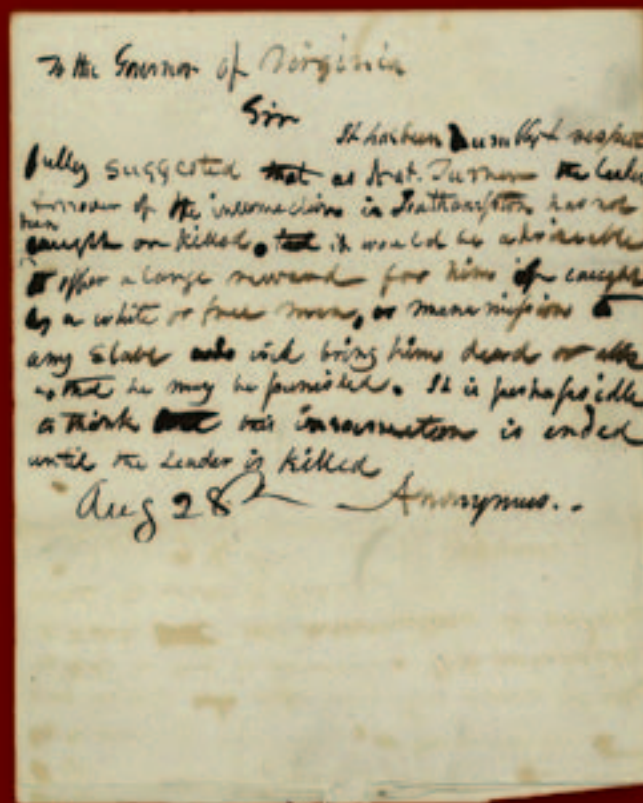 To the Governor of Virginia
Sir
It has been humbly & respect
fully suggested that as Nat. Turner the
of the insurrection in Southampton has not
been
caught or killed. it would be advisable
to offer a large reward for him if caught
by a white or free man, or manumission to
any slave who will bring him dead or
so that he may be punished. It is perhaps idle
to think the insurrection is ended
until the Leader is killed
Aug 28 Anonymus..